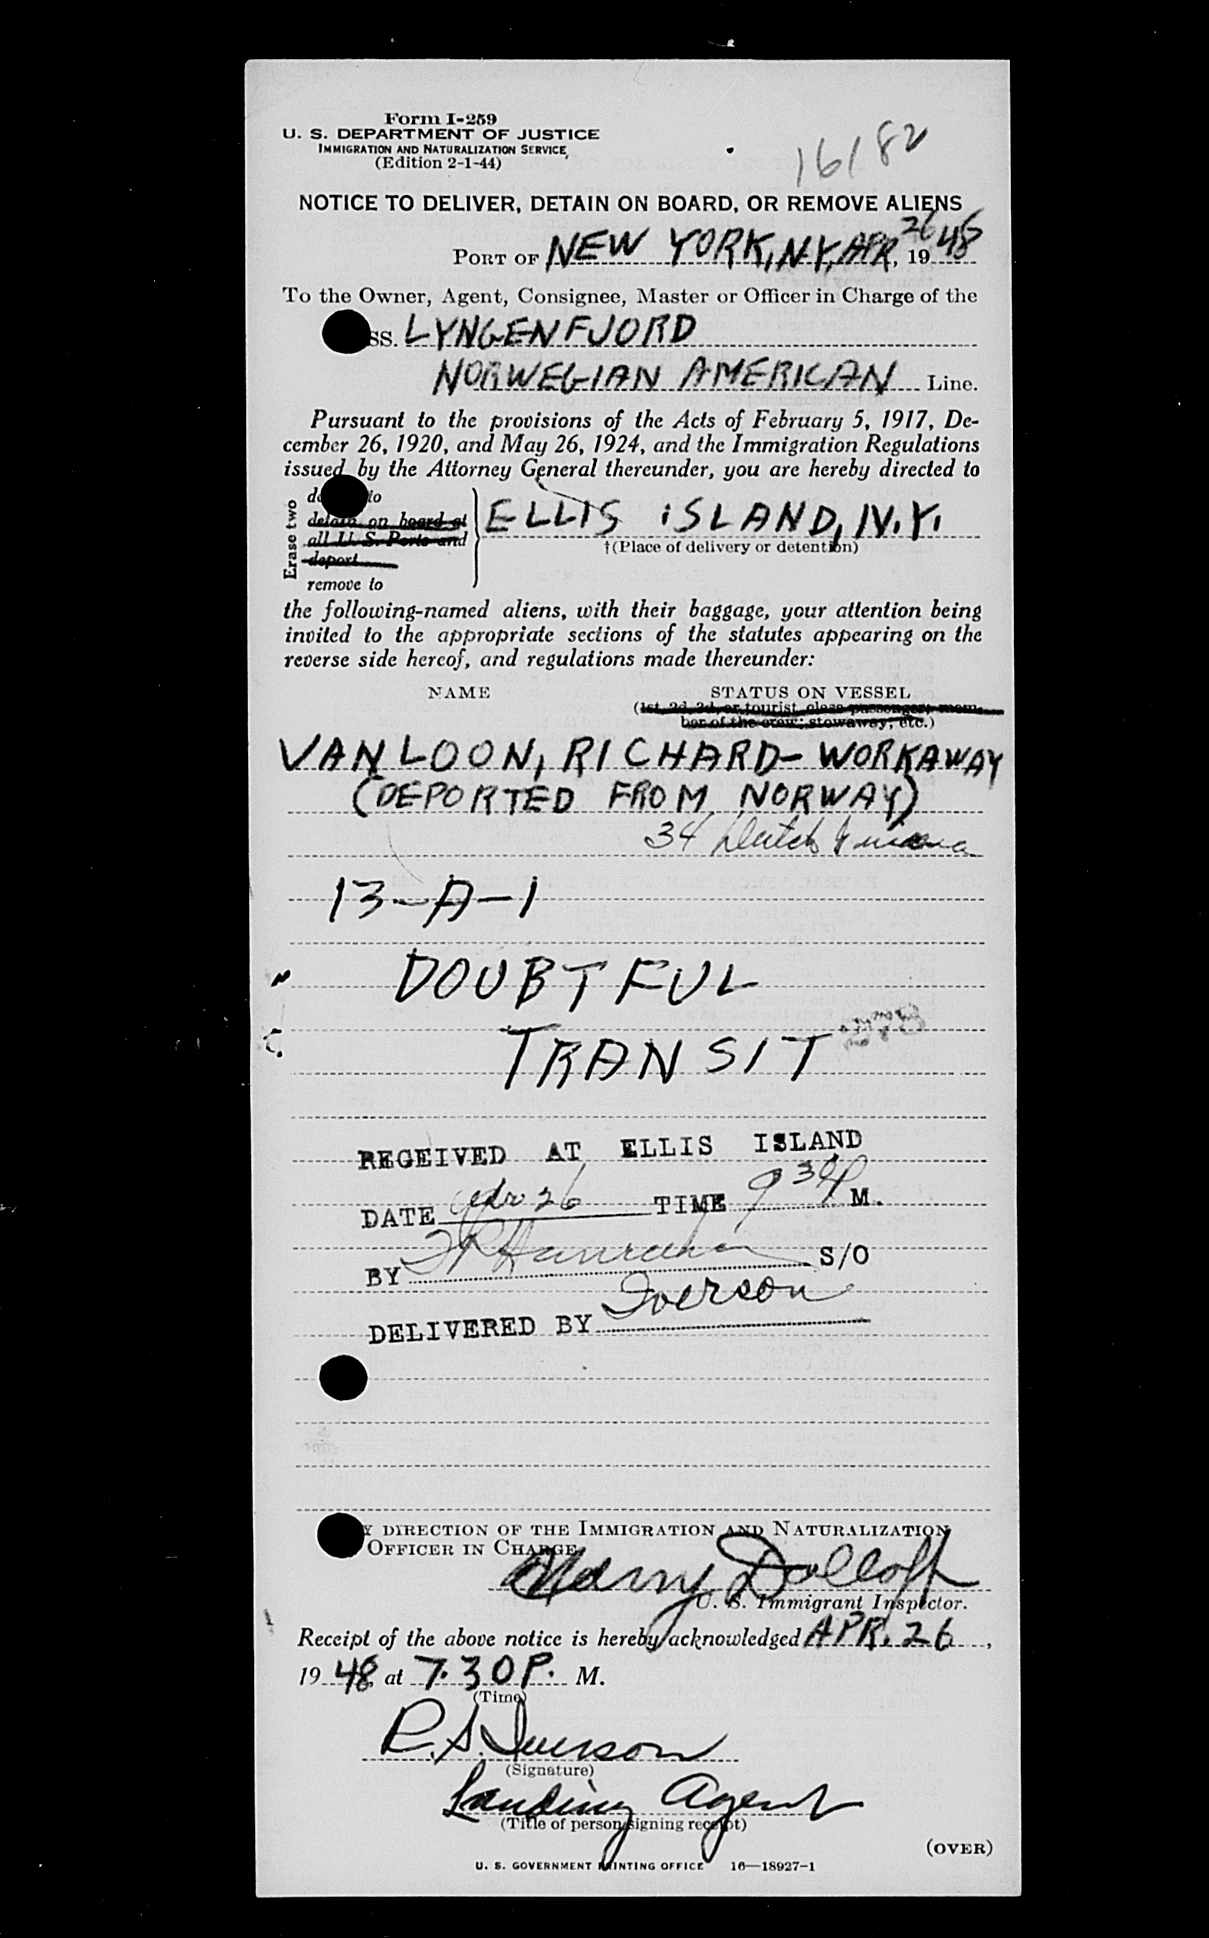 Form I-259
U. S. DEPARTMENT OF JUSTICE
IMMIGRATION AND NATURALIZATION SERVICE
(Edition 2-1-44)
16182
NOTICE TO DELIVER, DETAIN ON BOARD, OR REMOVE ALIENS
PORT OF NEW YORK, N.Y., APR. 26, 1948
To the Owner, Agent, Consignee, Master or Officer in Charge of the
SS. LYNGENFJORD
NORWEGIAN AMERICAN Line.
Pursuant to the provisions of the Acts of February 5, 1917, De-
cember 26, 1920, and May 26, 1924, and the Immigration Regulations
issued by the Attorney General thereunder, you are hereby directed to
Erase two
to
detain on board at
all U. S. Ports and
deport
remove to
ELLIS ISLAND, N.Y.
†(Place of delivery or detention)
the following-named aliens, with their baggage, your attention being
invited to the appropriate sections of the statutes appearing on the
reverse side hereof, and regulations made thereunder:
NAME STATUS ON VESSEL
(1st, 2d, 3d, or tourist class passenger; mem-
ber of the crew; stowaway, etc.)
VAN LOON, RICHARD - WORKAWAY
(DEPORTED FROM NORWAY)
34 Dutch Guiana
13-A-1
DOUBTFUL
TRANSIT
RECEIVED AT ELLIS ISLAND
DATE Apr 26 TIME 9 30 P M.
BY Hanrahan S/O
DELIVERED BY Iverson
Y DIRECTION OF THE IMMIGRATION AND NATURALIZATION
OFFICER IN CHARGE
Dolloff
U. S. Immigrant Inspector.
Receipt of the above notice is hereby acknowledged APR. 26,
1948 at 7.30 P. M.
(Time)
R. S. Iverson
(Signature)
Landing Agent
(Title of person signing receipt)
(OVER)
U. S. GOVERNMENT PRINTING OFFICE 16—18927-1